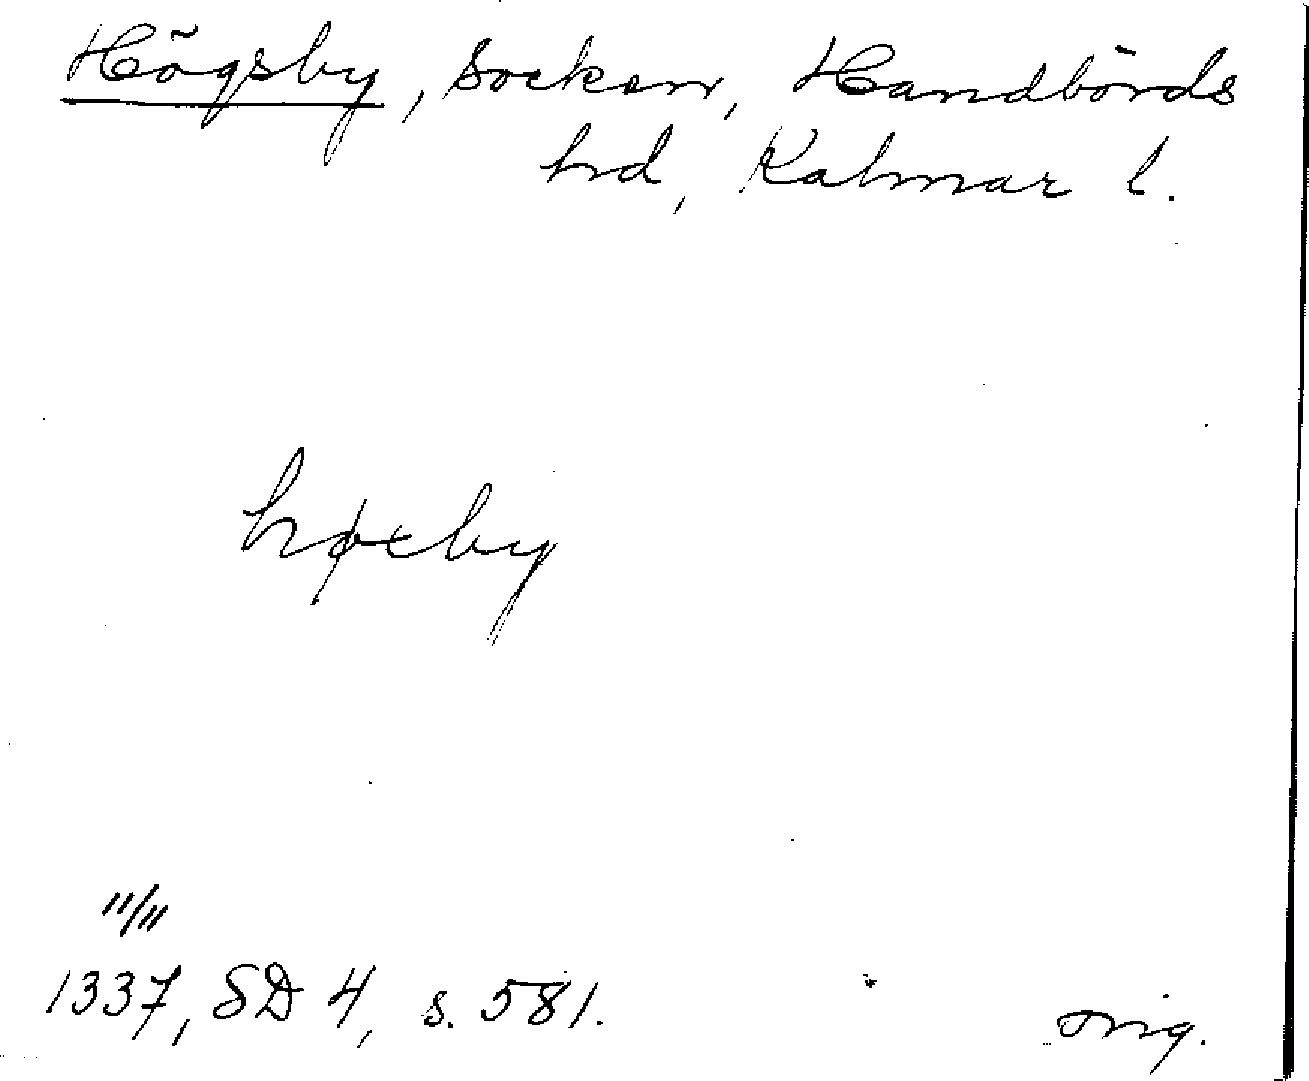 Högsby, socken, Handbörds
hd, Kalmar l.
høxby
11/11
1337, SD 4, s. 581.
orig.